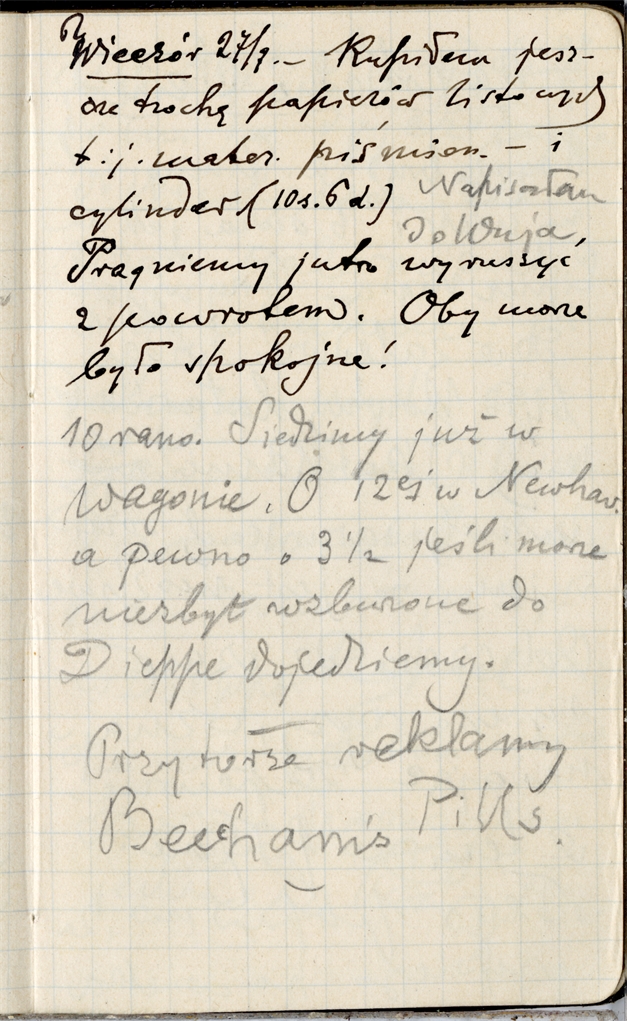 Wieczór 27/7. – Kupiłem jesz-
cze trochę papierów listowych
t.j. mater. piśmien. – i
cylinder (10 s. 6 d.) Napisałem
do Wuja,
Pragniemy jutro wyruszyć
z powrotem. Oby morze
było spokojne!
10 rano. Siedzimy już w
wagonie. O 12ej w Newhav.
a pewno o 3 1/2 jeśli morze
niezbyt wzburzone do
Dieppe dojedziemy.
Przy torze reklamy
Beecham's Pills.